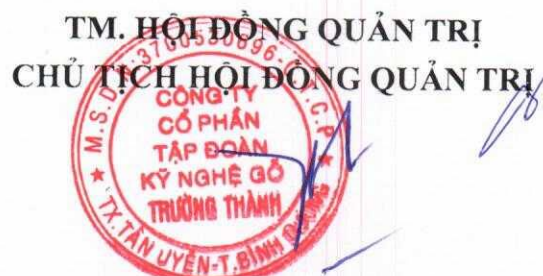 TM. HỘI ĐỒNG QUẢN TRỊ
CHỦ TỊCH HỘI ĐỒNG QUẢN TRỊ
M.S.D.N:3700530696-C.T.C.P
CÔNG TY
CỔ PHẦN
TẬP ĐOÀN
KỸ NGHỆ GỖ
TRƯỜNG THÀNH
TX.TÂN UYÊN-T.BÌNH DƯƠNG